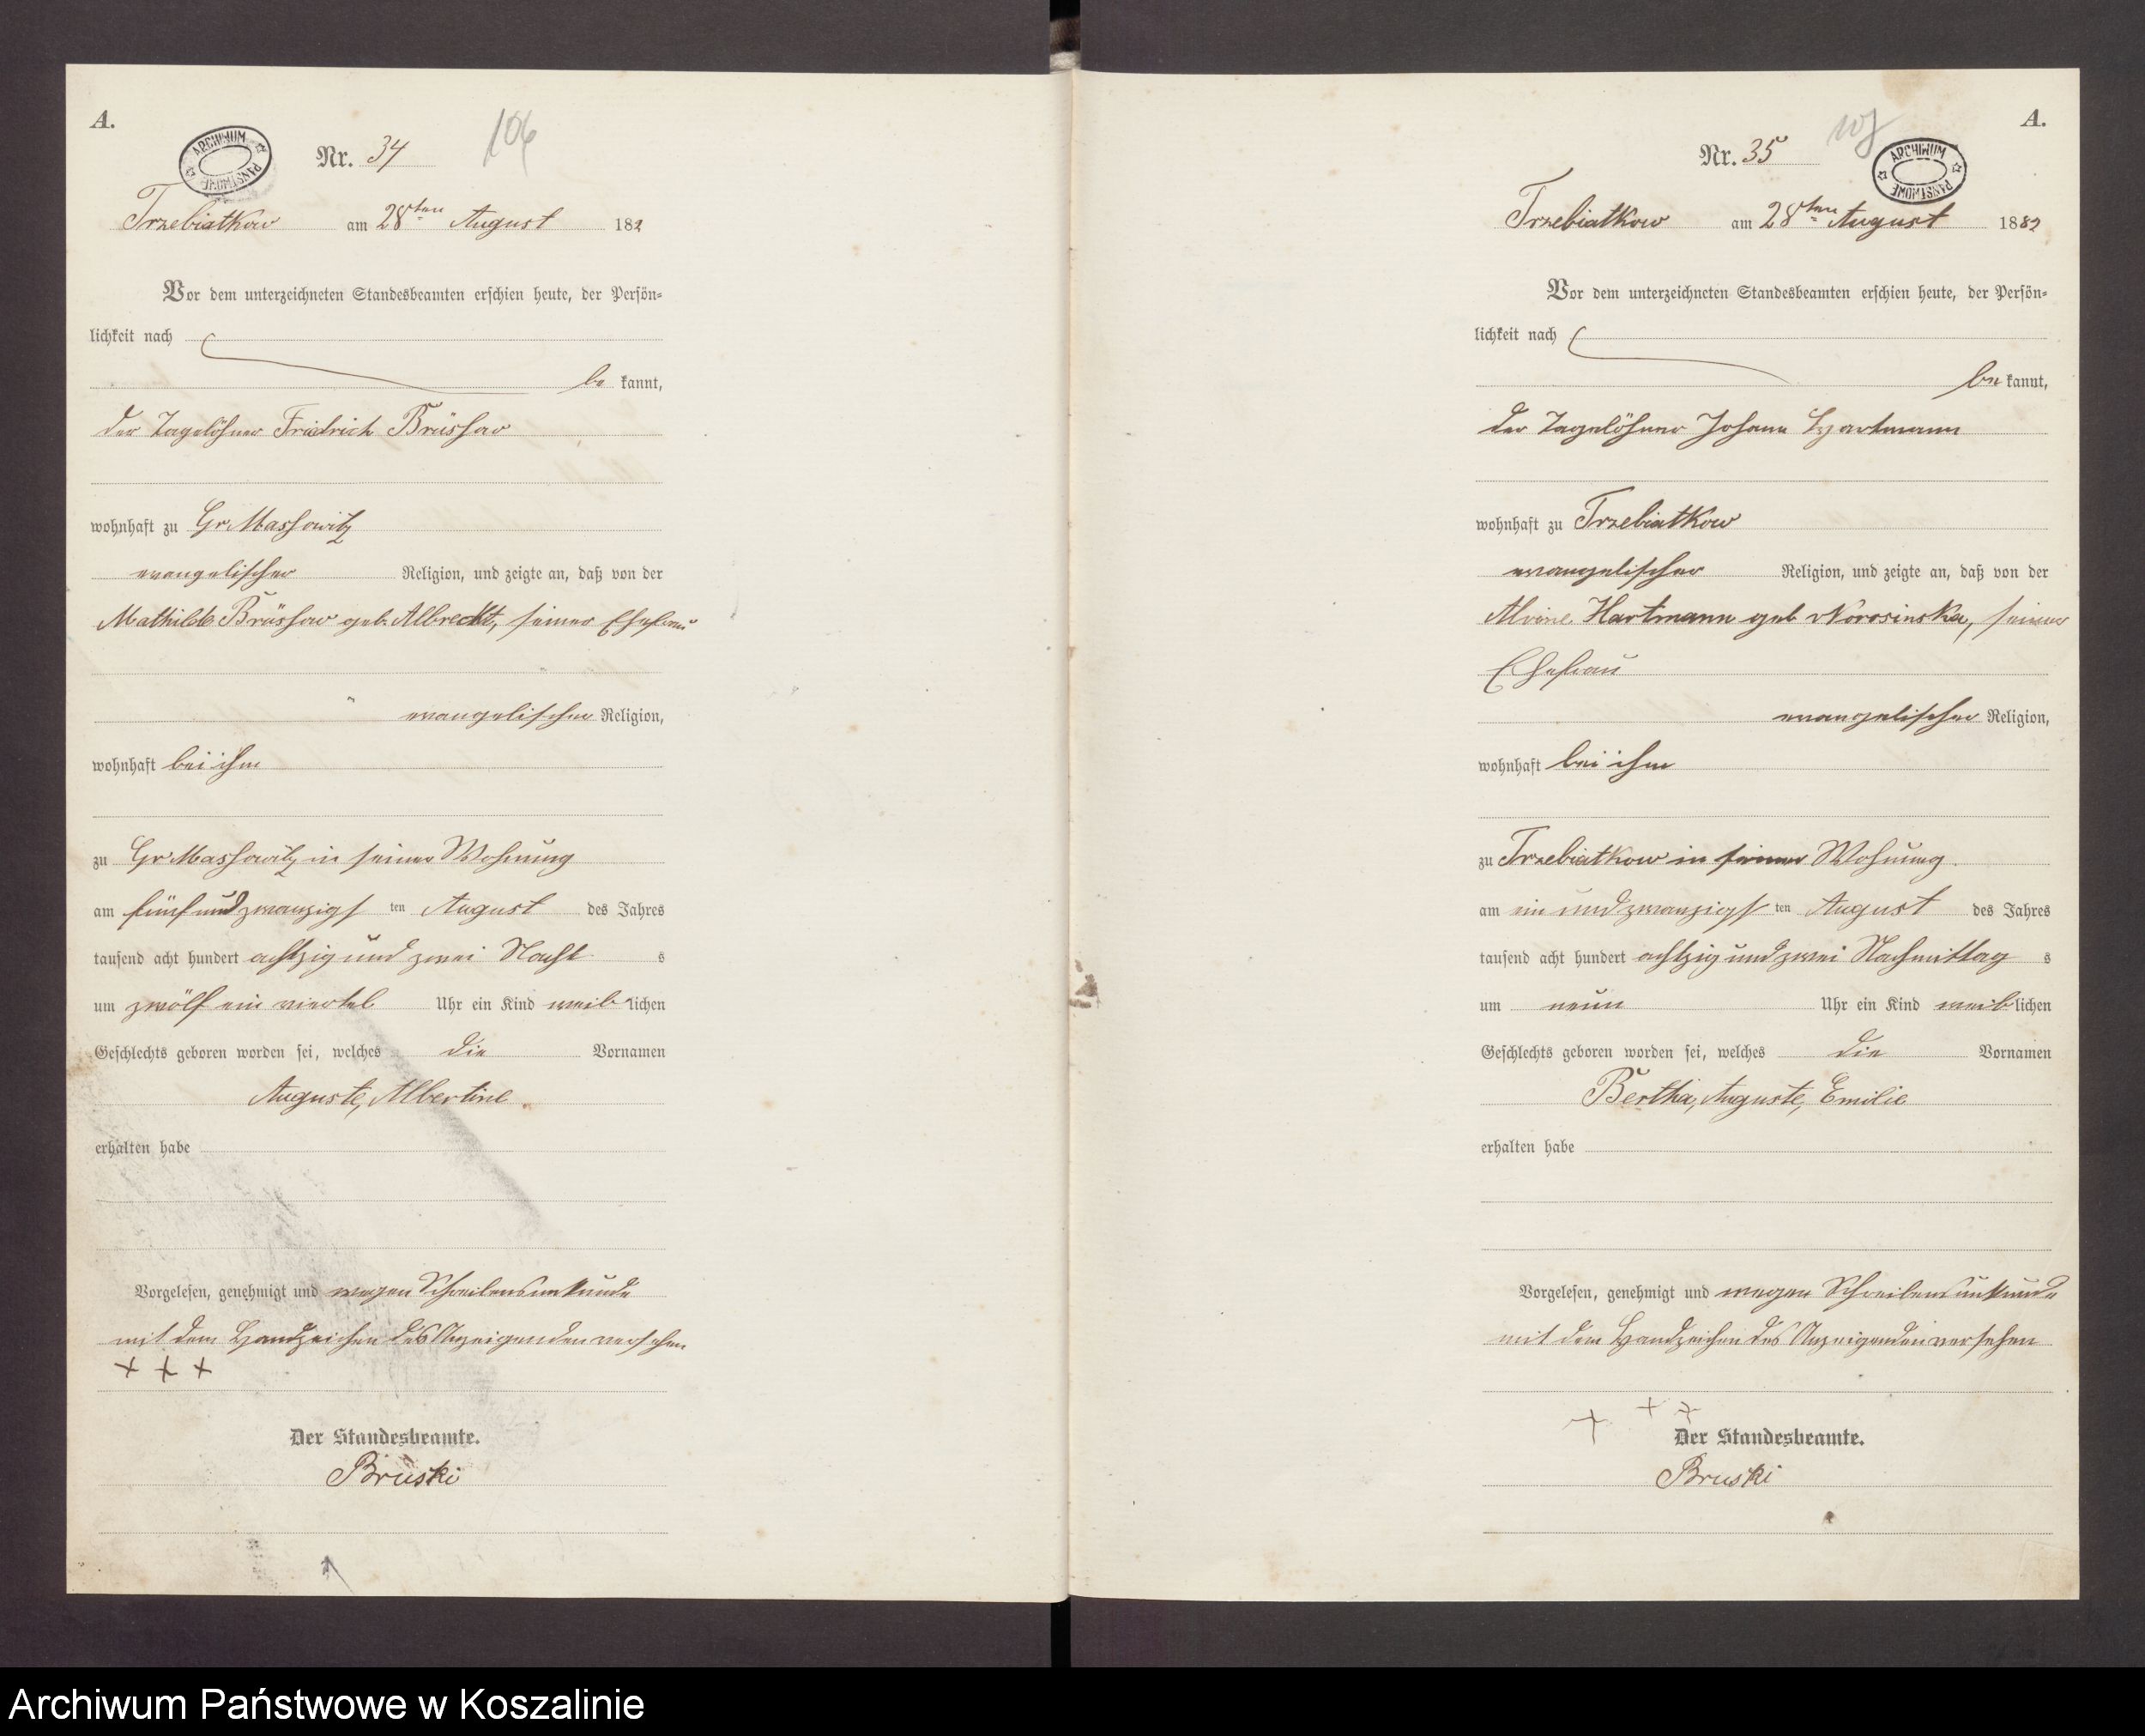 A.
ARCHIWUM PAŃSTWOWE
Nr. 34
106
Trzebiatkow am 28ten August 1882
Vor dem unterzeichneten Standesbeamten erschien heute, der Persön-
lichkeit nach
be kannt,
der Tagelöhner Friedrich Brüssow
wohnhaft zu Gr. Massowitz
evangelischer Religion, und zeigte an, daß von der
Mathilde Brüssow geb. Albrecht, seiner Ehefrau
evangelischer Religion,
wohnhaft bei ihm
zu Gr. Massowitz in seiner Wohnung
am fünf und zwanzigsten August des Jahres
tausend acht hundert achtzig und zwei Nacht s
um zwölf ein viertel Uhr ein Kind weiblichen
Geschlechts geboren worden sei, welches die Vornamen
Auguste, Albertine
erhalten habe
Vorgelesen, genehmigt und wegen Schreibensunkunde
mit dem Handzeichen des Anzeigenden versehen
+ + +
Der Standesbeamte.
Bruski
A.
ARCHIWUM PAŃSTWOWE
Nr. 35
Trzebiatkow am 28ten August 1882
Vor dem unterzeichneten Standesbeamten erschien heute, der Persön-
lichkeit nach
be kannt,
der Tagelöhner Johann Hartmann
wohnhaft zu Trzebiatkow
evangelischer Religion, und zeigte an, daß von der
Alvine Hartmann geb Norosinska, seiner
Ehefrau
evangelischer Religion,
wohnhaft bei ihm
zu Trzebiatkow in seiner Wohnung
am ein und zwanzigsten August des Jahres
tausend acht hundert achtzig und zwei Nachmittag s
um neun Uhr ein Kind weiblichen
Geschlechts geboren worden sei, welches die Vornamen
Bertha, Auguste, Emilie
erhalten habe
Vorgelesen, genehmigt und wegen Schreibensunkunde
mit dem Handzeichen des Anzeigenden versehen
+ + +
Der Standesbeamte.
Bruski
Archiwum Państwowe w Koszalinie